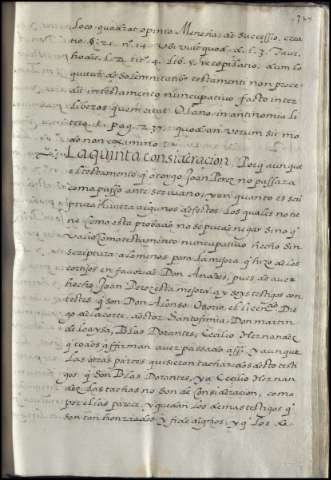 loco. quadrat opinio Menesii, de successio. crea
tio. § 21. n. 14. Ubi dic quod d. l. 3. Taur.
hodie, l. 2. tit. 4. lib. 5. recopilatio.
quitur de solemnitate testamenti non proce
dit in testamento nuncupativo facto inter
liberos quem citat Olano in antinomia li
tera t. pag. 237. quod an verum sit mo
do non examino.
La quinta consideracion. Porq̃ aunque
el testamento q̃ otorgo Joan Perez no passara
como passo ante scrivano, y en quanto es scri
ptura tuviera algunos defectos. Los quales no tie
ne como esta provado no se puede negar sino q̃
valio como testamento nuncupativo hecho sin
scriptura. a lo menos para la mejora q̃ hizo de los
cortijos en favor de Don Andres, pues de aver
hecho Joan Perez esta mejora, ay seys testigos con
testes q̃ son Don Alonso Osorio, el licenciado Die
go de la corte, doctor Santofimia, Don martin
de loaysa, Blas Dorantes, Cecilio Hernandez
q̃ todos affirman aver passado assi. Y aunque
las otras partes quisieron tachar dos desto testi
gos. q̃ son Blas Dorantes, ya Cecilio Hernan
dez las tachas no son de consideracion, como
por ellas parece. y quedan los demas testigos q̃
son tan honrrados y fidedignos, y q̃ los de